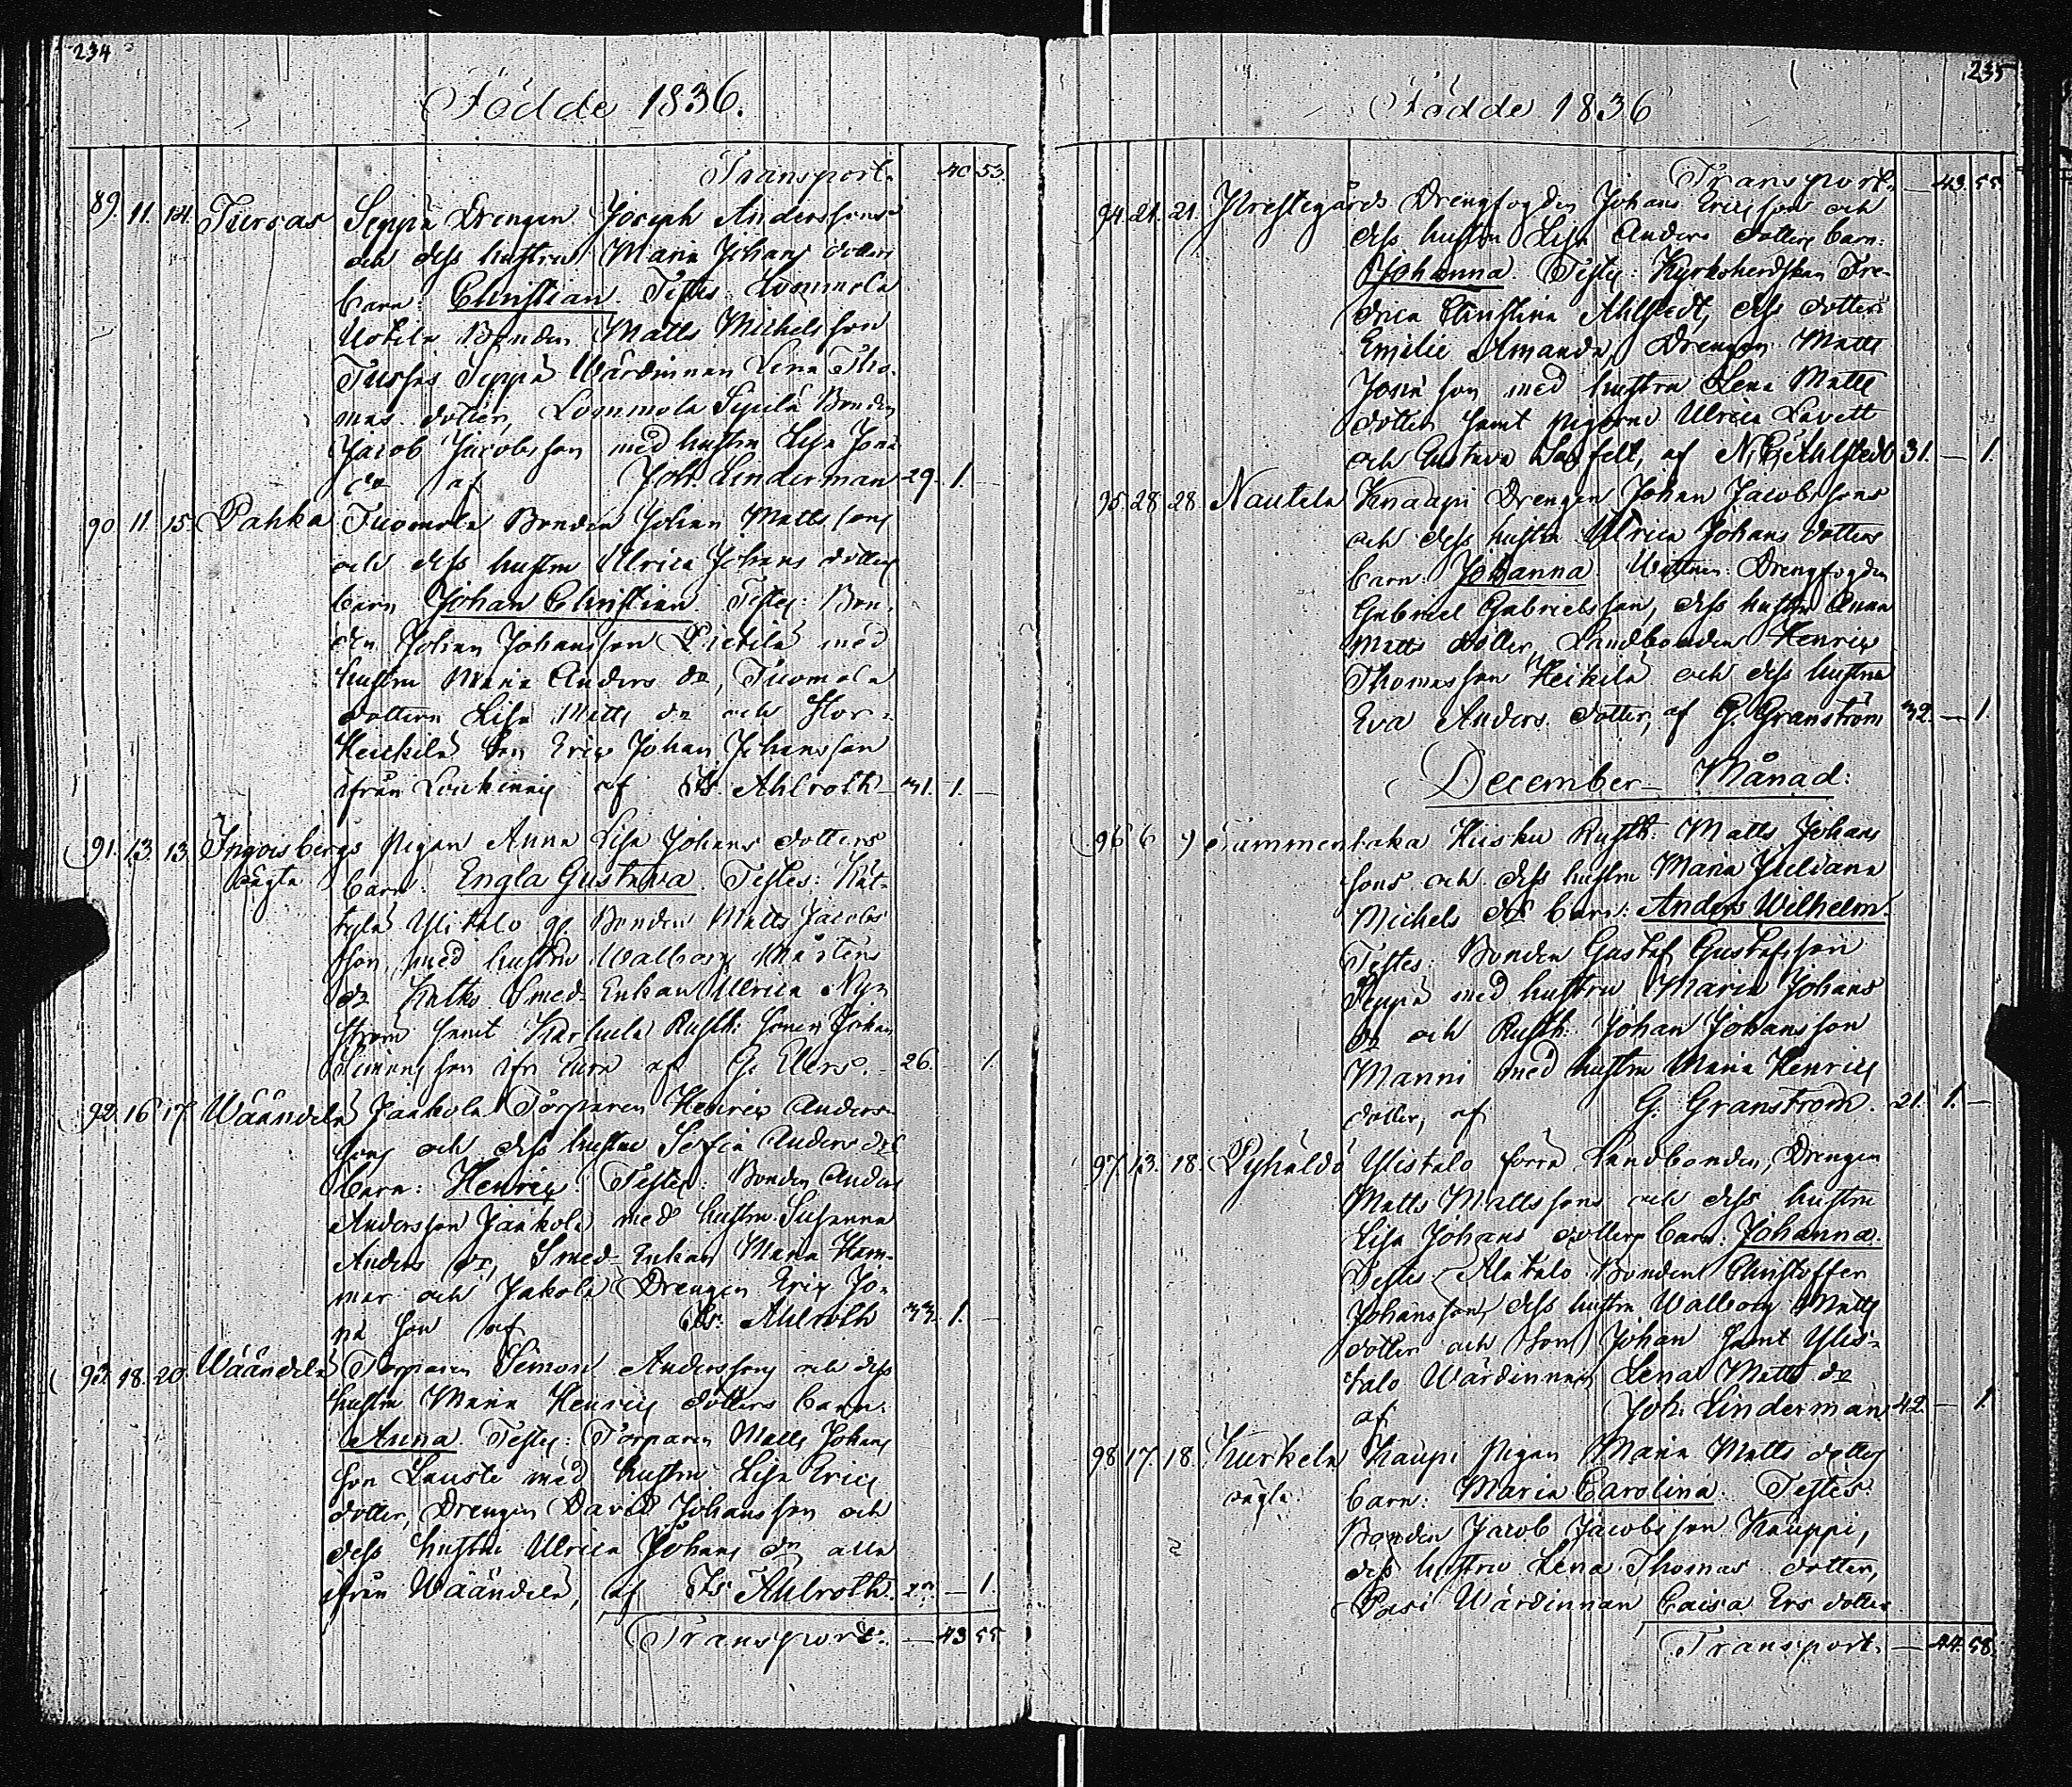 234
Födde 1836.
Transport. 40 53.
89. 11. 14. Tursas Seppä Drengen Joseph Anderssons
och dess hustru Maria Johans dotters
barn: Christian. Testes: Lommola
Uotila Bonden Matts Michelsson
Tursas Seppä Wärdinnan Lena Tho-
mas dotter, Lommola Sipilä Bonden
Jacob Jacobsson med hustru Lisa Jona
dr af Joh. Linderman 29. 1. —
90. 11. 15. Pahka Tuomola Bonden Johan Mattssons
och dess hustru Ulrica Johans dotters
barn Johan Christian Testes: Bon-
den Johan Johansson Pietilä med
hustru Maria Anders dr, Tuomola
dottern Lisa Matts dr och Stor-
Heickilä Son Eric Johan Johansson
ifrån af Is. Ahlroth 31. 1. —
91. 13. 13. Ingvisbergs Pigan Anna Lisa Johans dotters
oägta barn: Engla Gustava. Testes: Kät-
tylä Ylitalo Bonden Matts Jacobs
son, med hustru Walborg Mårtens
dr Smed-Enkan Ulrica Nyn
ström samt Karhula Rusth: sonen Johan
Simonsson ifr Eura af G. Elers. 26. 1.
92. 16 17. Wäändelä Jaakola Torparen Henric Anders-
sons och dess hustru Sofia Anders drs
barn: Henric. Testes: Bonden Anders
Andersson Jaakola med hustru Susanna
Anders dr, Smed-Enkan Maria Ham-
mar och Jakola Drengen Eric Jo-
na son af Is. Ahlroth 33. 1. —
93. 18. 20. Wäändelä Torparen Simon Anderssons och dess
hustru Maria Henrics dotters barn:
Anna. Testes: Torparen Matts Johans
son Lauste med hustru Lisa Erics
dotter, Drengen David Johansson och
dess hustru Ulrica Johans dr alla
ifrån Wäändelä, af Is. Ahlroth. — 1.
Transport. — 43 55.
235
Födde 1836
Transport. — 43. 55
94. 21. 21. Prestegårds Drengfogden Johans Ericsson och
dess hustru Lisa Anders dotters barn:
Johanna. Testes: Kyrkoherdskan Fre-
drica Christina Ahlstedt, dess dotter
Emilie Amanda, Drengen Matts
Jona son med hustru Lena Matts
dotter samt pigorne Ulrica Lavett
och Gustava af N. G. Ahlstedt 31. — 1.
95. 28. 28. Nautela Knaapi Drengen Johan Jacobssons
och dess hustru Ulrica Johans dotters
barn: Johanna. Wittnen: Drengfogden
Gabriel Gabrielsson, dess hustru Anna
Matts dotter, Landbonden Henric
Thomasson Heikilä och dess hustru
Eva Anders dotter, af G. Granström 32. — 1.
December Månad:
96 6 9 Sammentaka Hiisku Rusth: Matts Johans
sons och dess hustru Maria Juliana
Michels drs barn: Anders Wilhelm.
Testes: Bonden Gustaf Gustafsson
Seppä med hustru Maria Johans
dr och Rusth: Johan Johansson
Manni med hustru Maria Henrics
dotter, af G. Granström. 21. 1. —
97. 13. 18. Pyhäldö Ylistalo förra Landbonden, Drengen
Matts Mattssons och dess hustru
Lisa Johans dotters barn: Johanna.
Testes Alatalo Bonden Christoffer
Johansson, dess hustru Walborg Matts
dotter och son Johan samt Ylis-
talo Wärdinnan Lena Matts dr
af Joh. Linderman 42. — 1.
98 17. 18. Kurkela Kaupi Pigan Maria Matts dotters
oägta. barn: Maria Carolina. Testes:
Bonden Jacob Jacobsson Kauppi,
dess hustru Lena Thomas dotter,
Pasi Wärdinnan Caisa Ers dotter
Transport. — 44. 58.